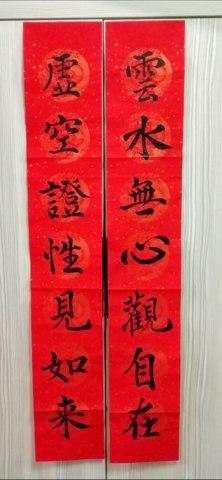 雲水無心觀自在
虛空證性見如来